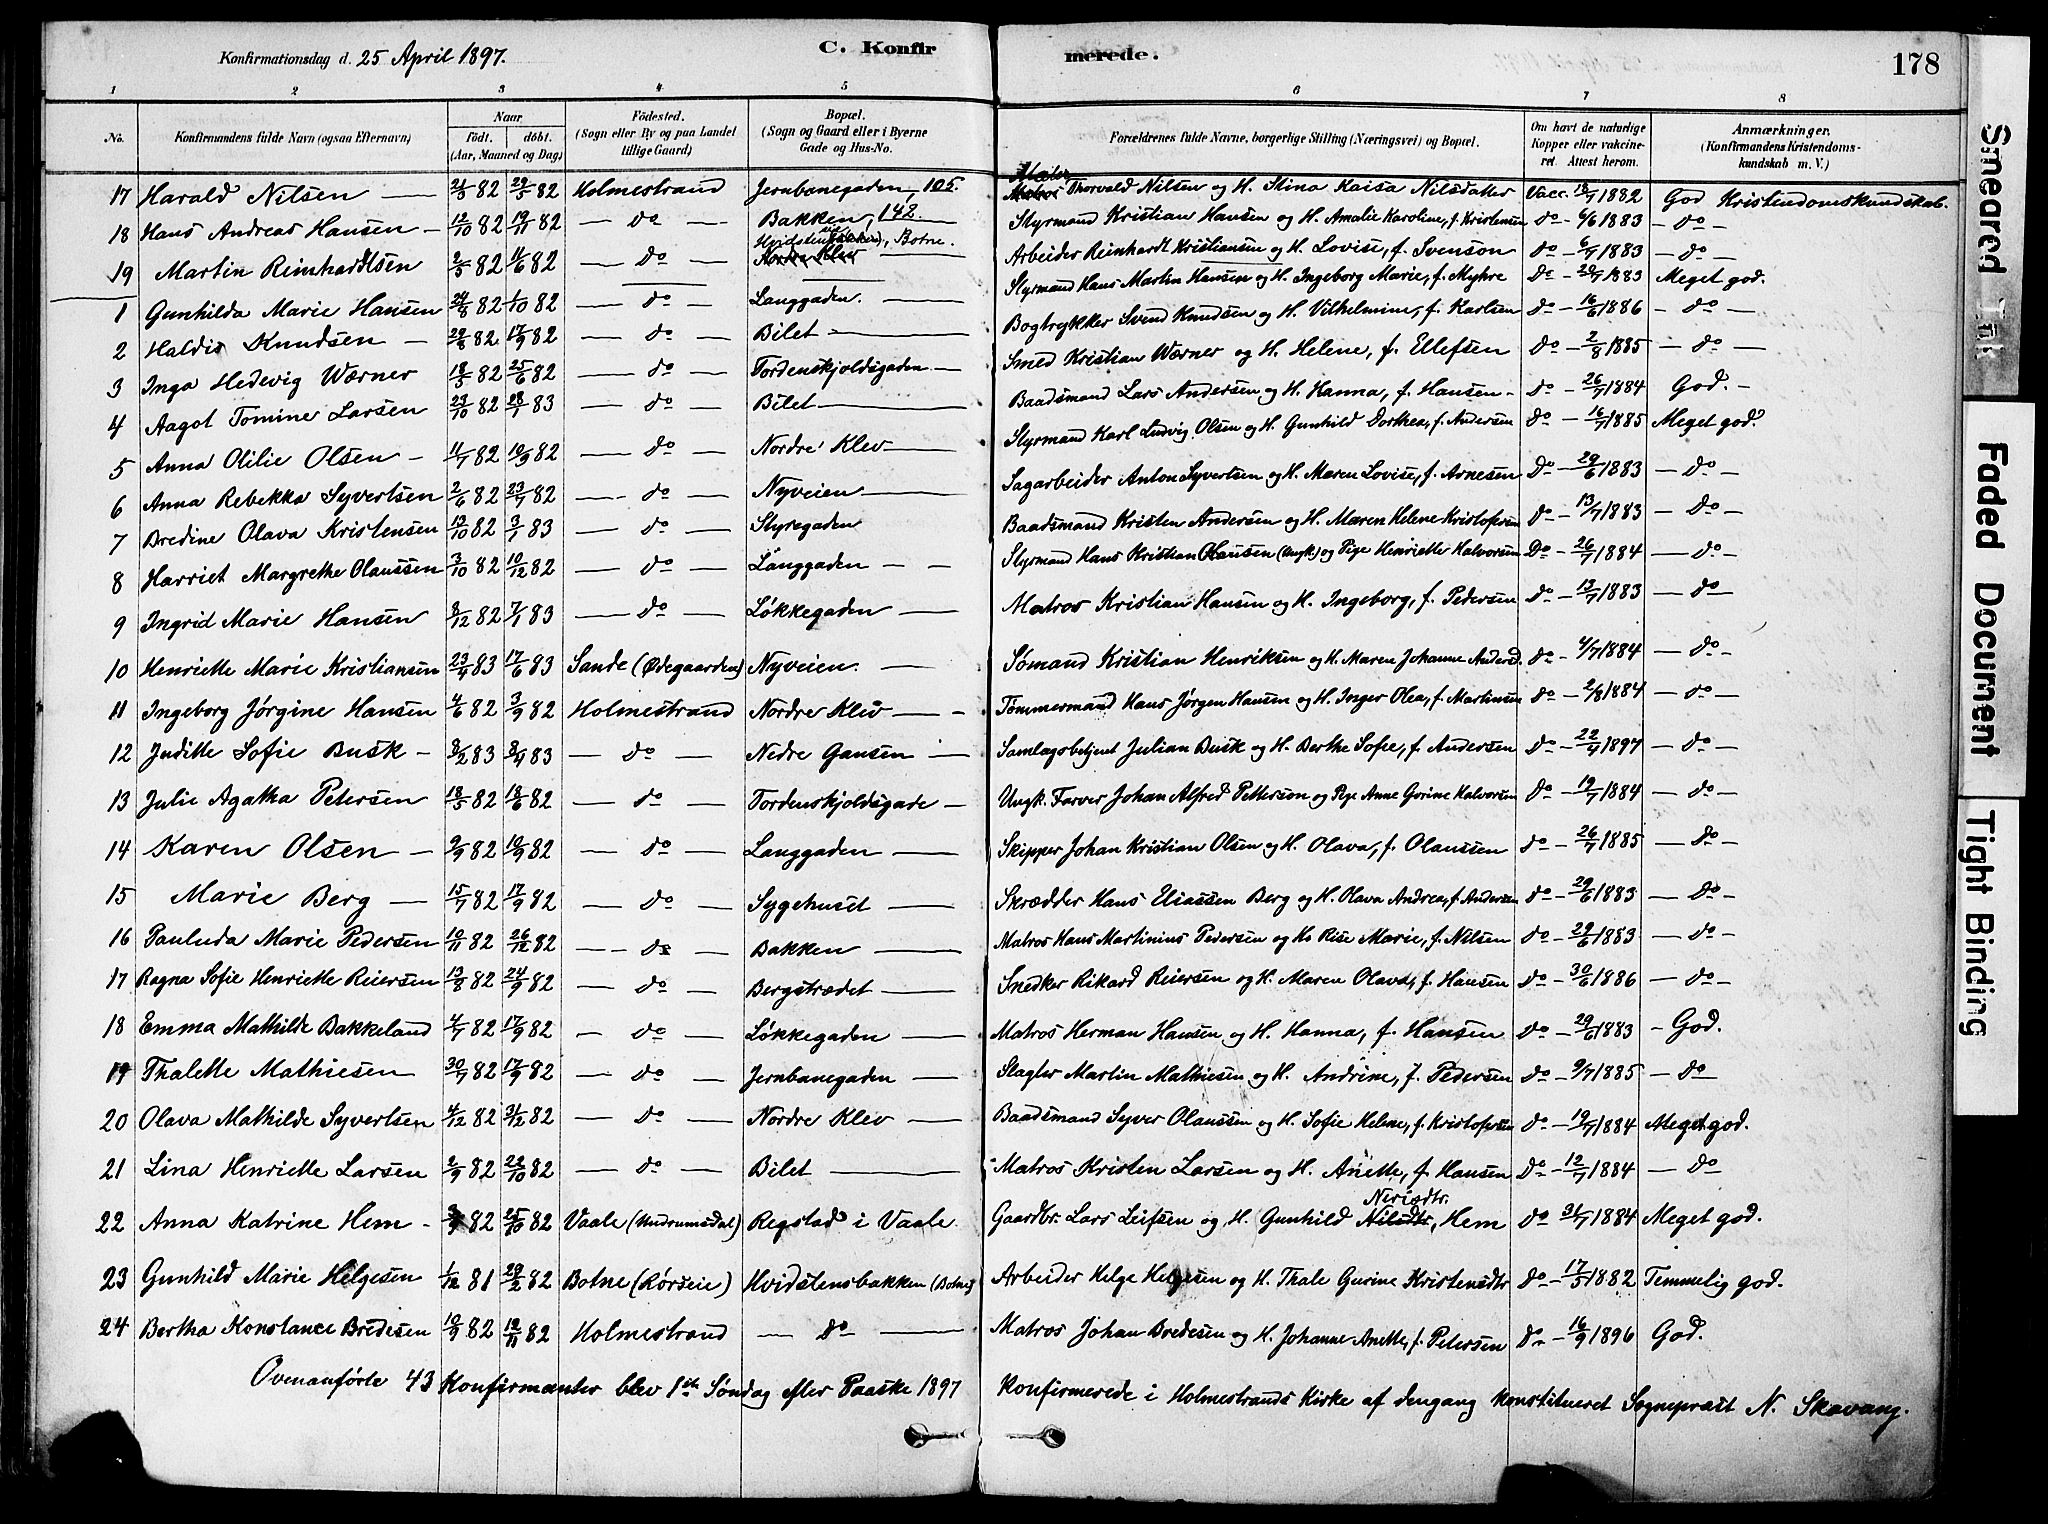 Konfirmationsdag d. 25 April 1897.
C. Konfirmerede.
178
1 2 3 4 5 6 7 8
No. Konfirmandens fulde Navn (ogsaa Efternavn) Naar Født. døbt. (Aar, Maaned og Dag) Fødested. (Sogn eller By og paa Landet tillige Gaard) Bopæl. (Sogn og Gaard eller i Byerne Gade og Hus-No. Forældrenes fulde Navne, borgerlige Stilling (Næringsvei) og Bopæl. Om havt de naturlige Kopper eller vakcineret. Attest herom. Anmærkninger. (Konfirmandens Kristendomskundskab m. V.)
17 Harald Nilsen — 21/3 82 29/5 82 Holmestrand Jernbanegaden 105. Maler Thorvald Nilsen og H. Stina Kaisa Nilsdatter Vacc. 18/7 1882 God Kristendomskundskab.
18 Hans Andreas Hansen — 12/10 82 19/11 82 — do — Bakken, 142 Styrmand Kristian Hansen og H. Amalie Karoline, f. Kristensen do — 6/6 1883 — do —
19 Martin Reinhardtsen 2/5 82 11/6 82 — do — Hvidsten (Bakken), Botne. Arbeider Reinhardt Kristiansen og H. Lovise, f. Svenson do — 6/7 1883 — do —
1 Gunhilda Marie Hansen 24/8 82 1/10 82 — do — Langgaden. — Styrmand Hans Martin Hansen og H. Ingeborg Marie, f. Myhre do — 20/7 1883 Meget god.
2 Haldis Knudsen — 29/8 82 17/9 82 — do — Bilet — Bogtrykker Svend Knudsen og H. Vilhelmine, f. Karlsen do — 16/6 1886 — do —
3 Inga Hedevig Wærner 18/5 82 25/6 82 — do — Tordenskjoldsgaden — Smed Kristian Wærner og H. Helene, f. Ellefsen do — 2/8 1885 — do —
4 Aagot Tomine Larsen 23/10 82 28/1 83 — do — Bilet — Baadsmand Lars Andersen og H. Hanna, f. Hansen — do — 26/7 1884 God. —
5 Anna Otilie Olsen — 11/7 82 10/9 82 — do — Nordre Klev — Styrmand Karl Ludvig Olsen og H. Gunhild Dorthea, f. Andersen do — 16/7 1885 Meget god.
6 Anna Rebekka Syvertsen 2/6 82 23/7 82 — do — Nyveien — Sagarbeider Anton Syvertsen og H. Maren Lovise, f. Arnesen do — 29/6 1883 — do —
7 Bredine Olava Kristensen 13/10 82 3/1 83 — do — Styregaden Baadsmand Kristen Andersen og H. Maren Helene Kristofersen do — 13/7 1883 — do —
8 Harriet Margrethe Olaussen 3/10 82 10/12 82 — do — Langgaden — — Styrmand Hans Kristian Olausen (Ungk.) og Pige Henriette Halvorsen Do — 26/7 1884 — do —
9 Ingrid Marie Hansen 8/12 82 7/1 83 — do — Løkkegaden — Matros Kristian Hansen og H. Ingeborg, f. Pedersen do — 13/7 1883 — do —
10 Henriette Marie Kristiansen 23/4 83 17/6 83 Sande (Ødegaarden) Nyveien. — Sømand Kristian Henriksen og H. Maren Johanne Andersd. do — 4/7 1884 — do —
11 Ingeborg Jørgine Hansen 4/6 82 3/9 82 Holmestrand Nordre Klev — Tømmermand Hans Jørgen Hansen og H. Inger Olea, f. Martinsen do — 2/8 1884 — do —
12 Juditte Sofie Busk — 8/2 83 8/4 83 — do — Nedre Gausen — Samlagsbetjent Julian Busk og H. Berthe Sofie, f. Andersen do — 22/4 1897 — do —
13 Julie Agatha Petersen 18/5 82 18/6 82 — do — Tordenskjoldsgade — Ungk. Farver Johan Alfred Petterson og Pige Anne Gurine Halvorsen do — 19/7 1884 — do —
14 Karen Olsen — 9/9 82 10/9 82 — do — Langgaden — Skipper Johan Kristian Olsen og H. Olava, f. Olaussen do — 26/7 1885 — do —
15 Marie Berg — 15/7 82 17/9 82 — do — Sygehuset — Skrædder Hans Eliassen Berg og H. Olava Andrea, f. Andersen do — 29/6 1883 — do —
16 Pauluda Marie Pedersen 10/11 82 26/12 82 — do — Bakken — Matros Hans Martinius Pedersen og Ko Rise Marie, f. Nilsen do — 29/6 1883 — do —
17 Ragna Sofie Henriette Reiersen 13/8 82 24/9 82 — do — Bergstrædet — Snedker Rikard Reiersen og H. Maren Olava, f. Hansen do — 30/6 1886 — do —
18 Emma Mathilde Bakkeland 4/7 82 17/9 82 — do — Løkkegaden — Matros Herman Hansen og H. Hanna, f. Hansen do — 29/6 1883 — God.
19 Thalette Mathiesen 30/7 82 17/9 82 — do — Jernbanegaden — Slagter Martin Mathiesen og H. Andrine, f. Pedersen do — 9/7 1885 — do
20 Olava Mathilde Syvertsen 4/12 82 31/12 82 — do — Nordre Klev — Baadsmand Syver Olaussen og H. Sofie Helene, f. Kristofersen do — 19/7 1884 Meget god.
21 Lina Henriette Larsen 2/9 82 22/10 82 — do — Bilet — Matros Kristen Larsen og H. Anette, f. Hansen do — 12/7 1884 — do
22 Anna Katrine Hem — 82 25/10 82 Vaale (Undrumsdal) Regstad i Vaale Gaardbr. Lars Leifsen og H. Gunhild Nilsdtr., Hem do — 31/7 1884 Meget god.
23 Gunhild Marie Helgesen 1/12 81 29/2 82 Botne (Rørseie) Hvidstensbakken (Botne) Arbeider Helge Helgesen og H. Thale Gurine Kristensdtr do — 17/5 1882 Temmelig god.
24 Bertha Konstance Bredesen 10/9 82 12/11 82 Holmestrand — do — Matros Johan Bredesen og H. Johanne Anette, f. Petersen do — 16/9 1896 God.
Ovenanførte 43 Konfirmanter blev 1ste Søndag efter Paaske 1897 konfirmerede i Holmestrands Kirke af dengang konstitueret Sognepræst N. Skavang.
Smeared Ink
Faded Document
Tight Binding